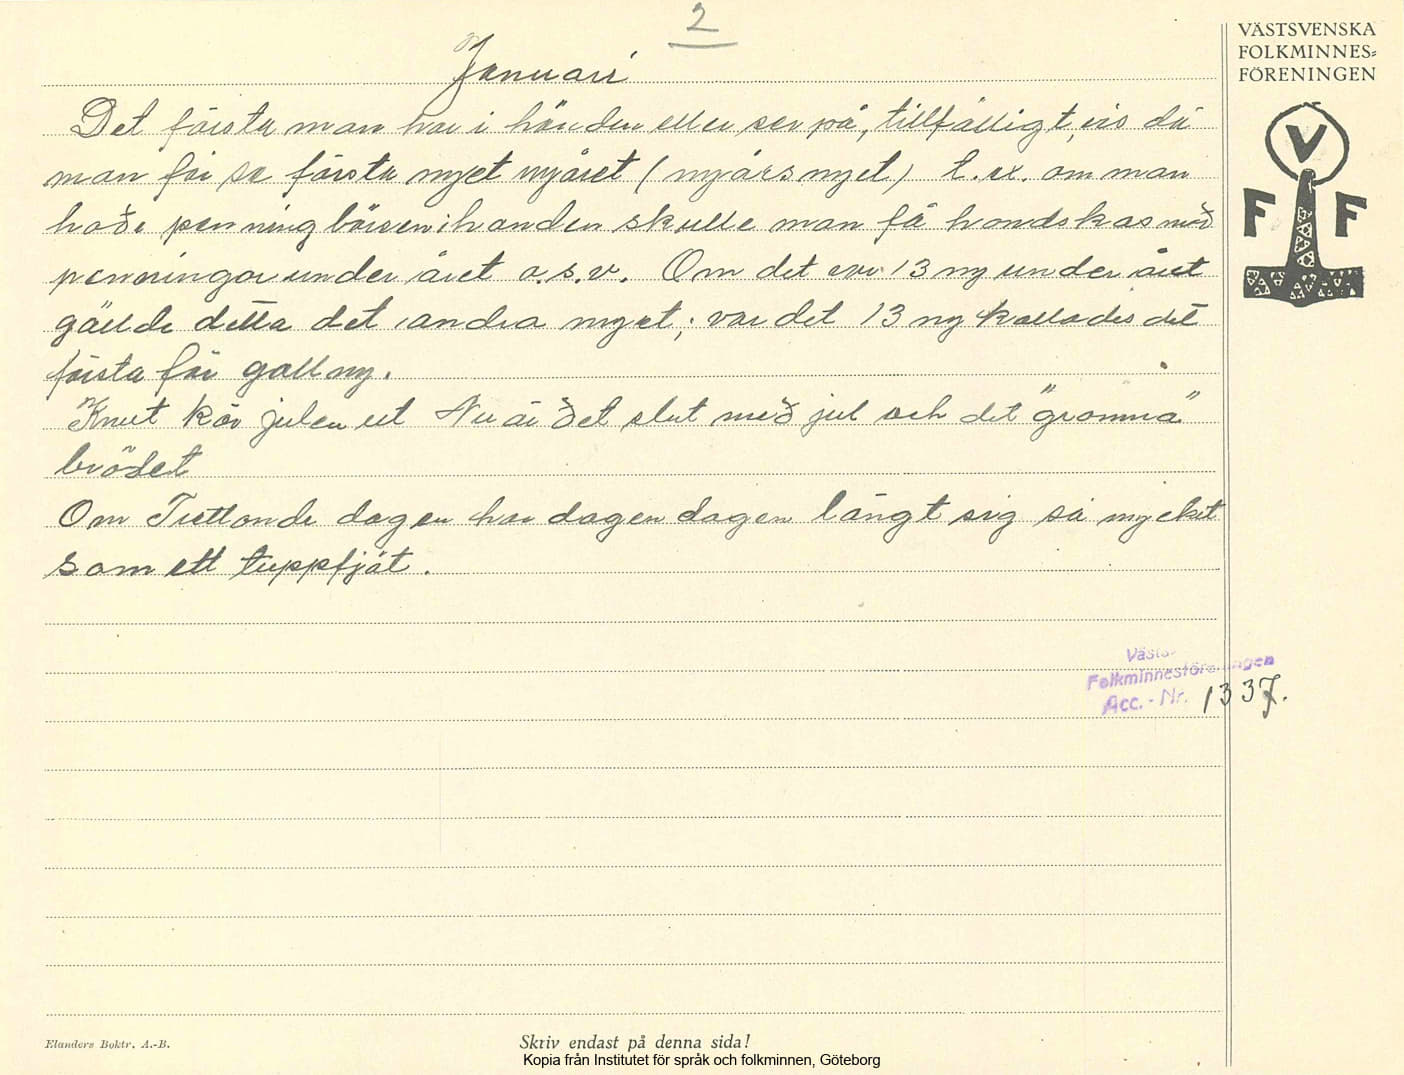 2
VÄSTSVENSKA
FOLKMINNES=
FÖRENINGEN
V
F F
Januari
Det första man har i handen eller ser på, tillfälligtvis då
man får se första nyet nyåret (nyårsnyet) t. ex. om man
hade penningbörsen i handen skulle man få handskas med
penningar under året o. s. v. Om det var 13 ny under året
gällde detta det andra nyet; var det 13 ny kallades det
första för gall ny.
Knut kör julen ut Nu är det slut med jul och det "gromma"
brödet
Om Trettonde dagen har dagen dagen längt sig så mycket
som ett tuppfjät.
Folkminnesföreningen
Acc. - Nr. 1337.
Elanders Boktr. A.-B.
Skriv endast på denna sida!
Kopia från Institutet för språk och folkminnen, Göteborg